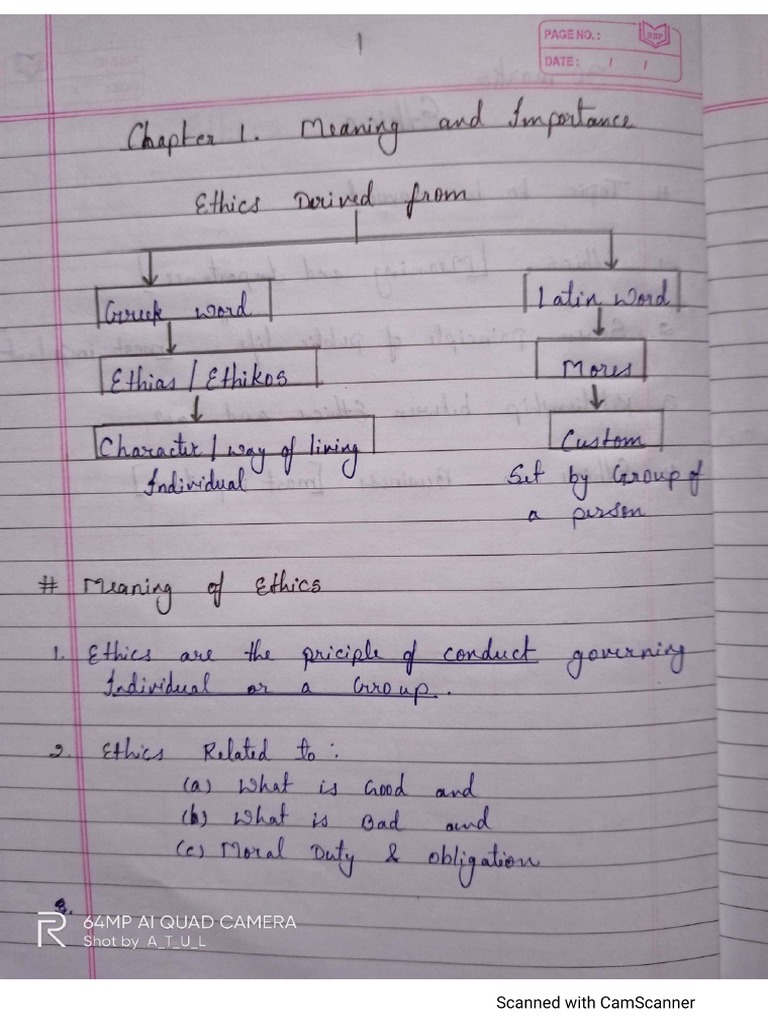 1
PAGE NO.:
RBP
DATE: / /
Chapter 1. Meaning and Importance
Ethics Derived from
Greek word
Latin Word
Ethias / Ethikos
Mores
Character / way of living
Custom
Individual
Set by Group of
a person
# Meaning of Ethics
1. Ethics are the priciple of conduct governing
Individual or a Group.
2. Ethics Related to :
(a) What is Good and
(b) What is Bad and
(c) Moral Duty & obligation
3.
64MP AI QUAD CAMERA
Shot by A_T_U_L
Scanned with CamScanner